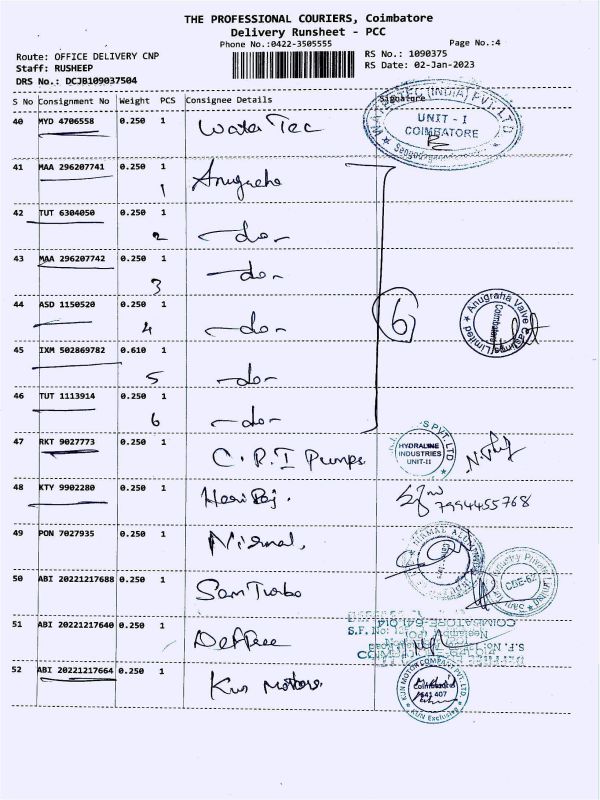 THE PROFESSIONAL COURIERS, Coimbatore
Delivery Runsheet - PCC
Phone No.:0422-3505555
Page No.:4
Route: OFFICE DELIVERY CNP
RS No.: 1090375
Staff: RUSHEEP
RS Date: 02-Jan-2023
DRS No.: DCJB109037504
S No Consignment No Weight PCS Consignee Details Signature
40 MYD 4706558 0.250 1 Water Tec
UNIT - I
COIMBATORE
41 MAA 296207741 0.250 1 Anugraha
1
42 TUT 6304050 0.250 1
2 -do-
43 MAA 296207742 0.250 1 -do-
3
44 ASD 1150520 0.250 1
4 -do-
6
Anugraha Valve Castings Limited
Coimbatore
45 IXM 502869782 0.610 1
5 -do-
46 TUT 1113914 0.250 1
6 -do-
47 RKT 9027773 0.250 1 C.R.I Pumps
S PVT. LTD
HYDRALINE
INDUSTRIES
UNIT-II
48 KTY 9902280 0.250 1 Hari Raj.
7994455768
49 PON 7027935 0.250 1 Nirmal,
50 ABI 20221217688 0.250 1 Sam Turbo
51 ABI 20221217640 0.250 1 Deffree
COIMBATORE-641
S.F. No:
52 ABI 20221217664 0.250 1 Kun Motors.
KUN MOTOR COMPANY PVT. LTD.
Coimbatore
641 407
KUN Exclusive